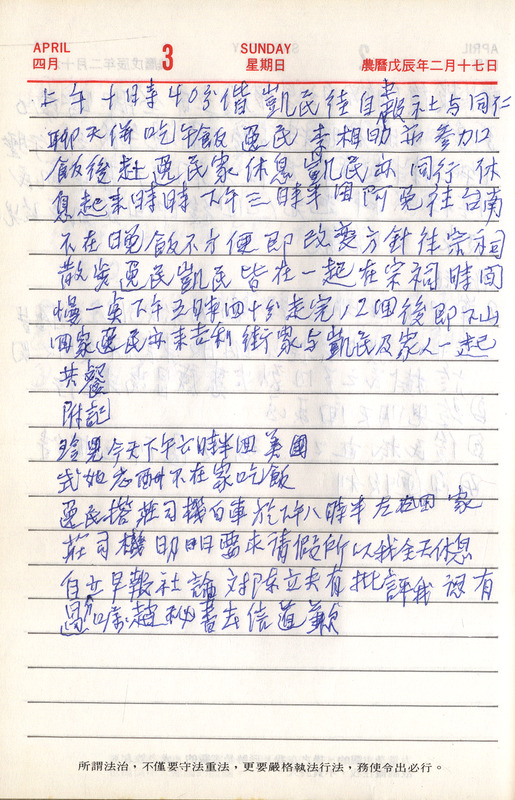 APRIL 3 SUNDAY
四月 星期日 農曆戊辰年二月十七日
上午十時40分偕凱民往自報社与同仁
聊天併吃午飯 逸民 素相助 亦參加
飯後赴逸民家休息 凱民亦同行 休
息起來時時下午三時半因阿 往台南
不在晚飯不方便即改變方針往宗祠
散步逸民凱民皆在一起在宗祠時間
慢一点下午五時四十分走完12個後即下山
回家逸民亦來吉利街家与凱民及家人一起
共餐
附記
玲 今天下午六時半回美國
式她志 不在家吃飯
逸民搭莊司機的車於下午八時半左右回家
莊司機 明日要求請假所以我全天休息
自立早報社論 对陳立夫有批評我認有
過 囑趙秘書去信道歉
所謂法治，不僅要守法重法，更要嚴格執法行法，務使令出必行。